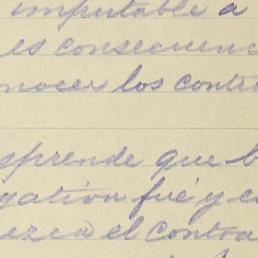 imputable a
es consecuenc
nocer los contr
sprende que b
gation fué y es
ezca el contra